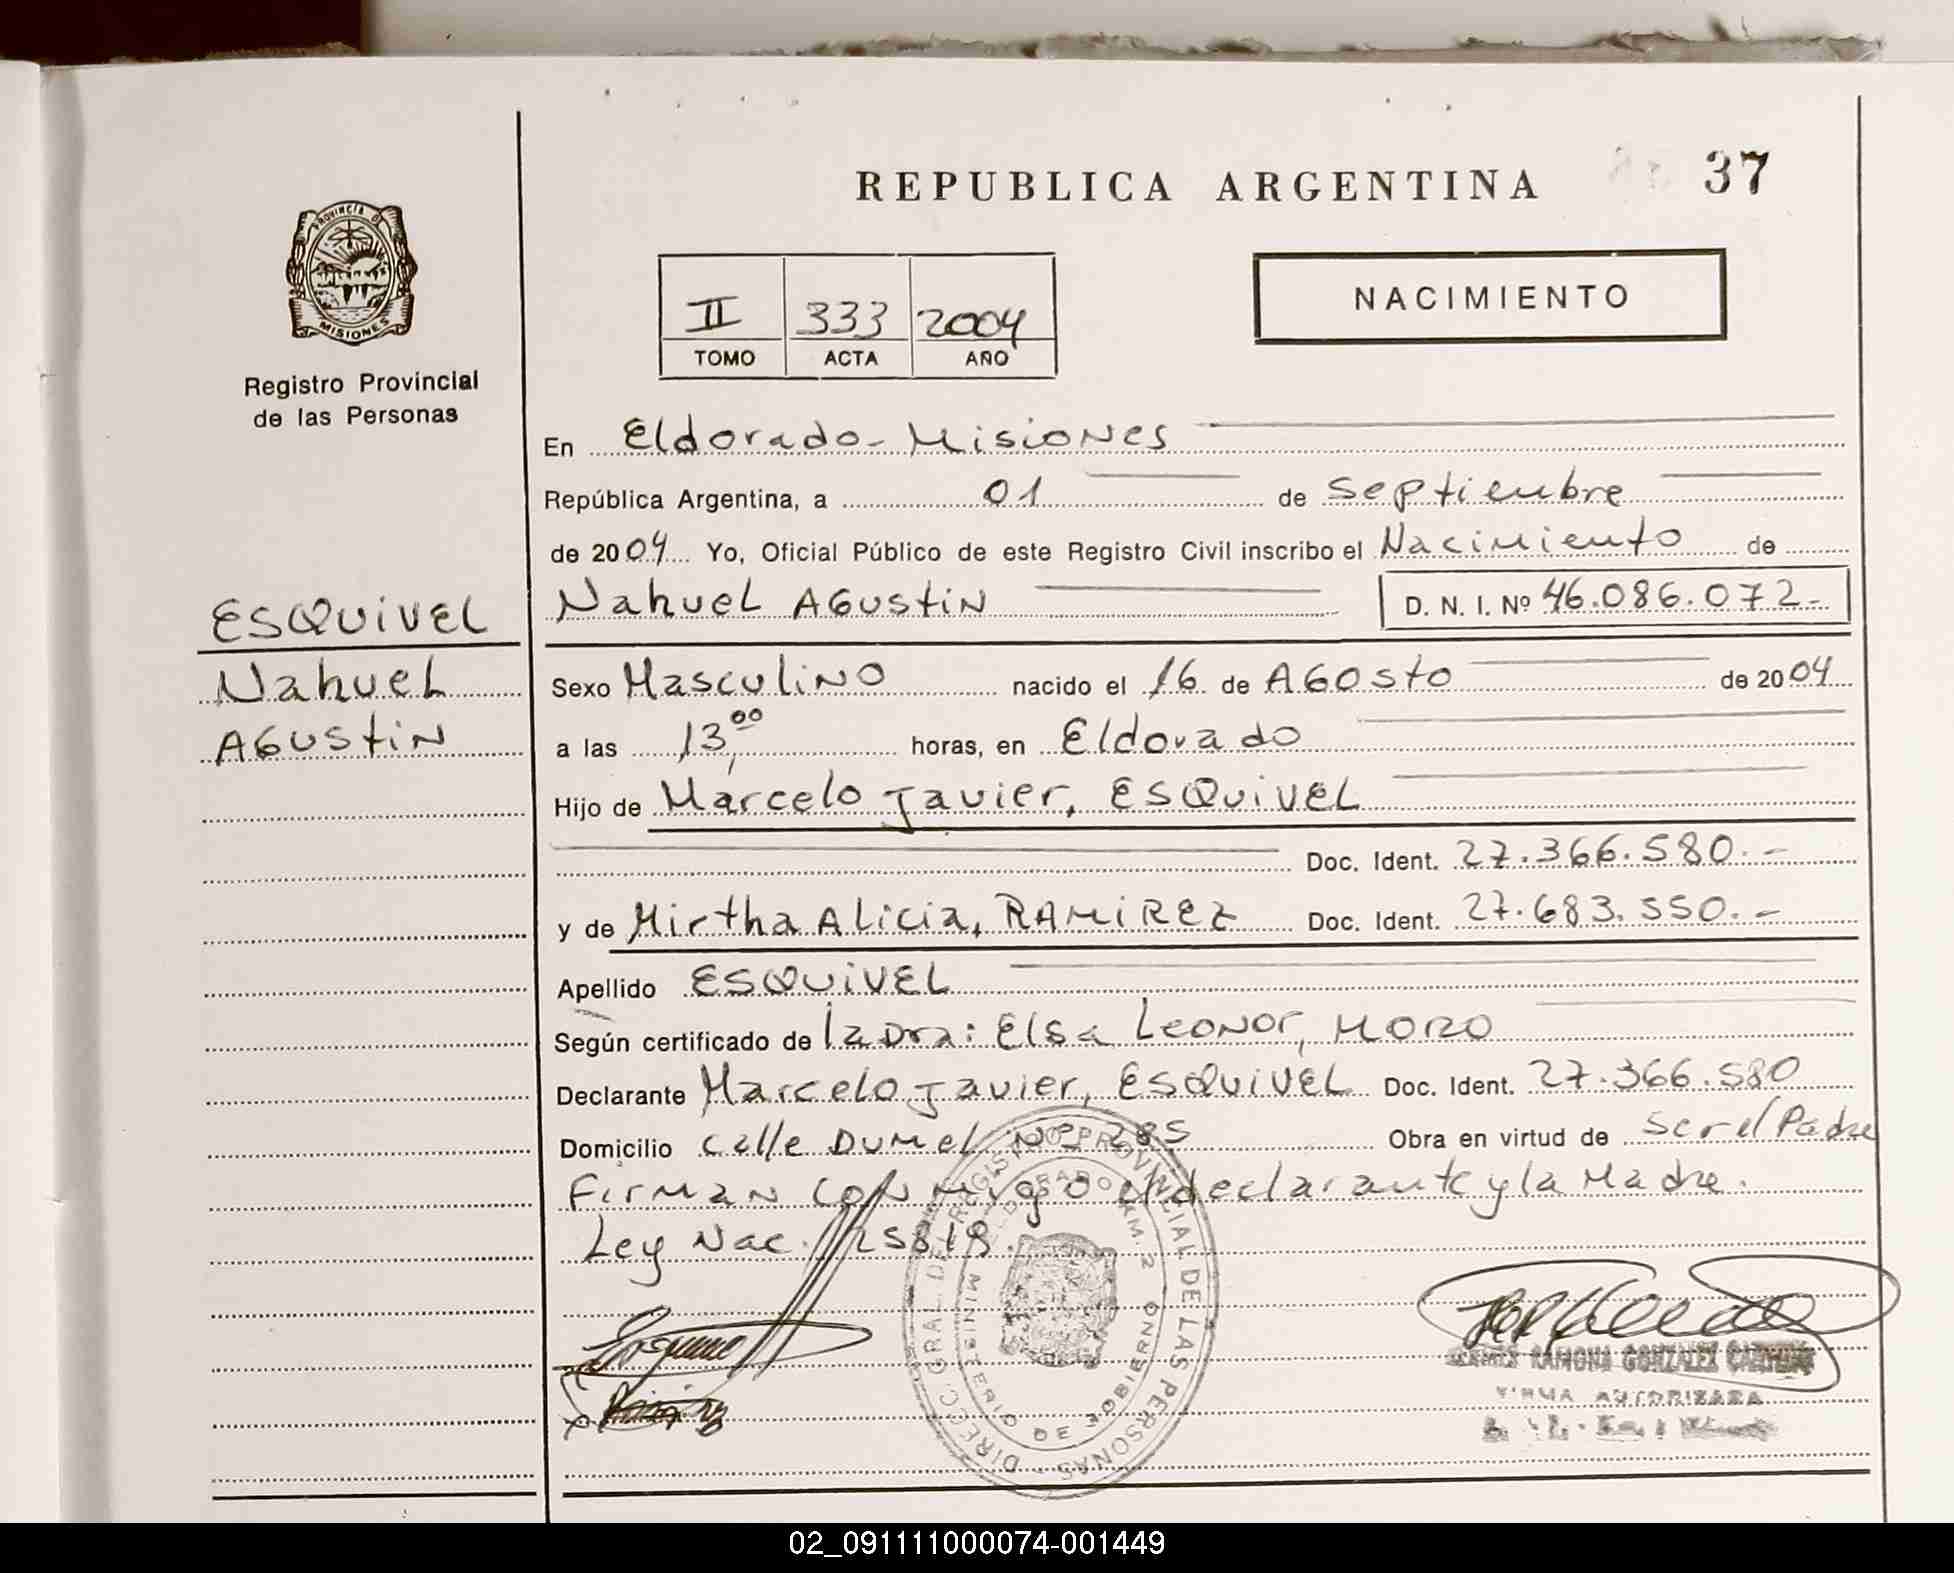 REPUBLICA ARGENTINA
37
PROVINCIA DE
MISIONES
Registro Provincial
de las Personas
II 333 2004
TOMO ACTA AÑO
NACIMIENTO
En Eldorado - Misiones
República Argentina, a 01 de septiembre
de 2004 Yo, Oficial Público de este Registro Civil inscribo el Nacimiento de
Nahuel Agustin D. N. I. Nº 46.086.072-
ESQUIVEL
Nahuel
Agustin
Sexo Masculino nacido el 16 de Agosto de 2004
a las 13,00 horas, en Eldorado
Hijo de Marcelo Javier, ESQUIVEL
Doc. Ident. 27.366.580.-
y de Mirtha Alicia, RAMIREZ Doc. Ident. 27.683.550.-
Apellido ESQUIVEL
Según certificado de la Dra: Elsa Leonor, MORO
Declarante Marcelo Javier, ESQUIVEL Doc. Ident. 27.366.580
Domicilio Calle DUMEL Nº 285 Obra en virtud de ser el Padre
Firman conmigo el declarante y la Madre.
Ley Nac. 25818.
DIREC. GRAL. DE REGISTRO PROVINCIAL DE LAS PERSONAS
ELDORADO KM. 2
MINISTERIO DE GOBIERNO
RAMONA GONZALEZ
FIRMA AUTORIZADA
02_091111000074-001449